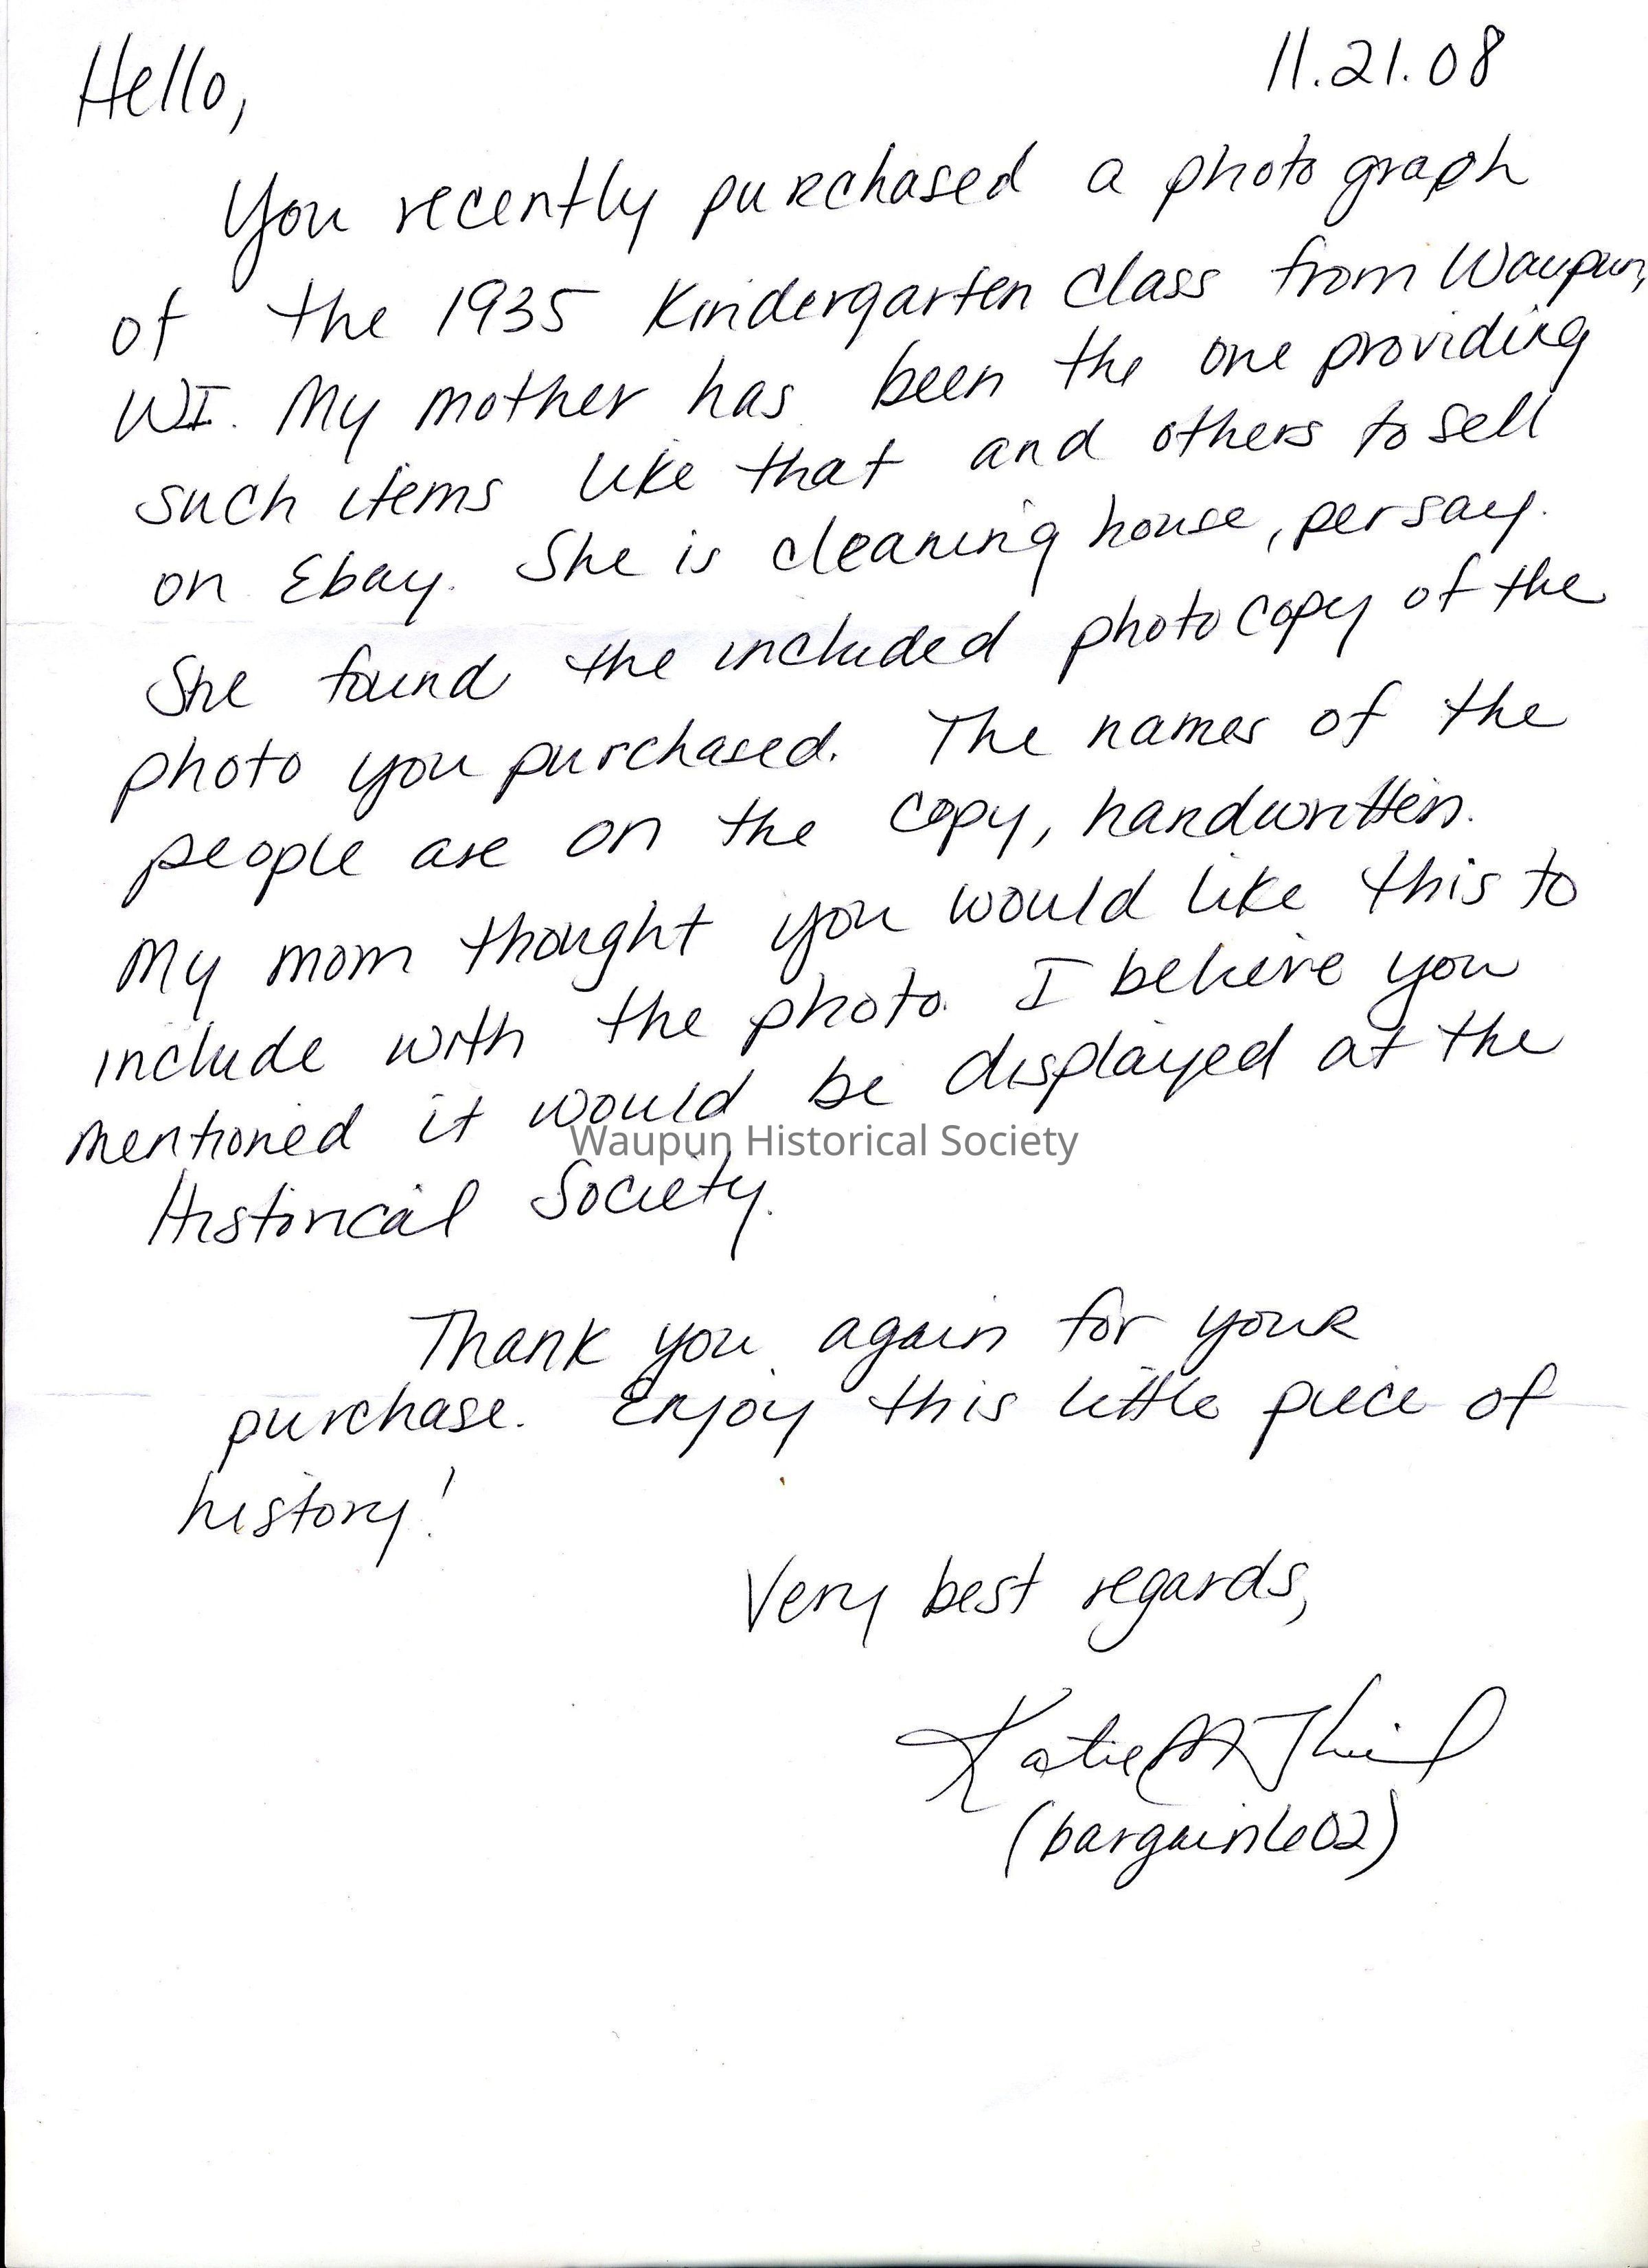 Hello,
11.21.08
You recently purchased a photograph
of the 1935 Kindergarten class from Waupun,
WI. My mother has been the one providing
such items like that and others to sell
on Ebay. She is cleaning house, per say.
She found the included photocopy of the
photo you purchased. The names of the
people are on the copy, handwritten.
My mom thought you would like this to
include with the photo. I believe you
mentioned it would be displayed at the
Waupun Historical Society
Historical Society.
Thank you again for your
purchase. Enjoy this little piece of
history!
Very best regards,
Katie M